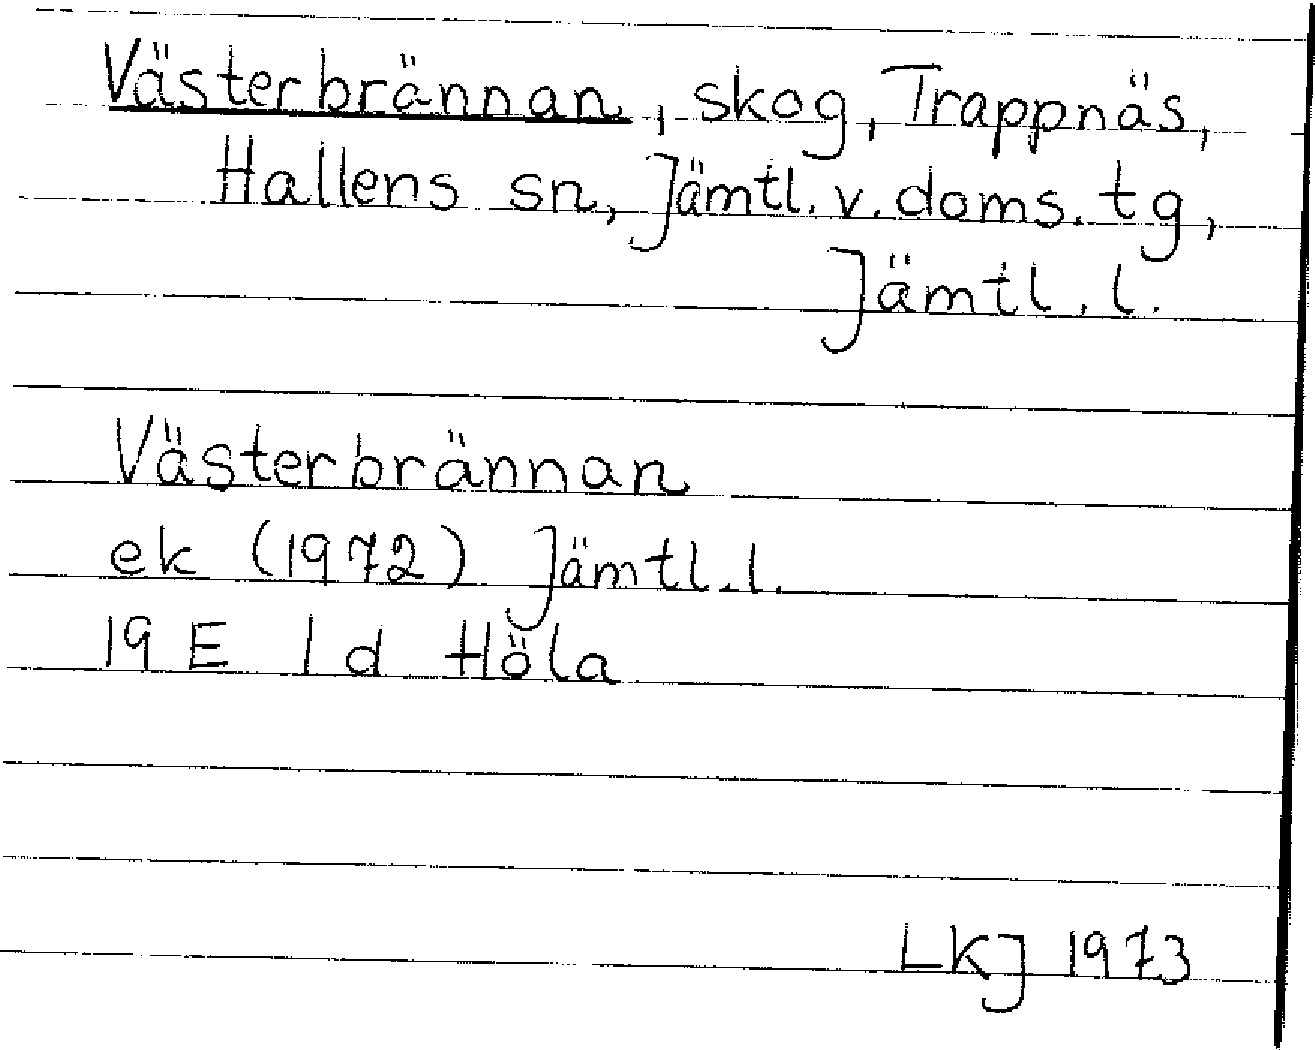 Västerbrännan, skog, Trappnäs,
Hallens sn, Jämtl. v. doms. tg,
Jämtl. l.
Västerbrännan
ek (1972) Jämtl. l.
19 E 1 d Höla
LKJ 1973